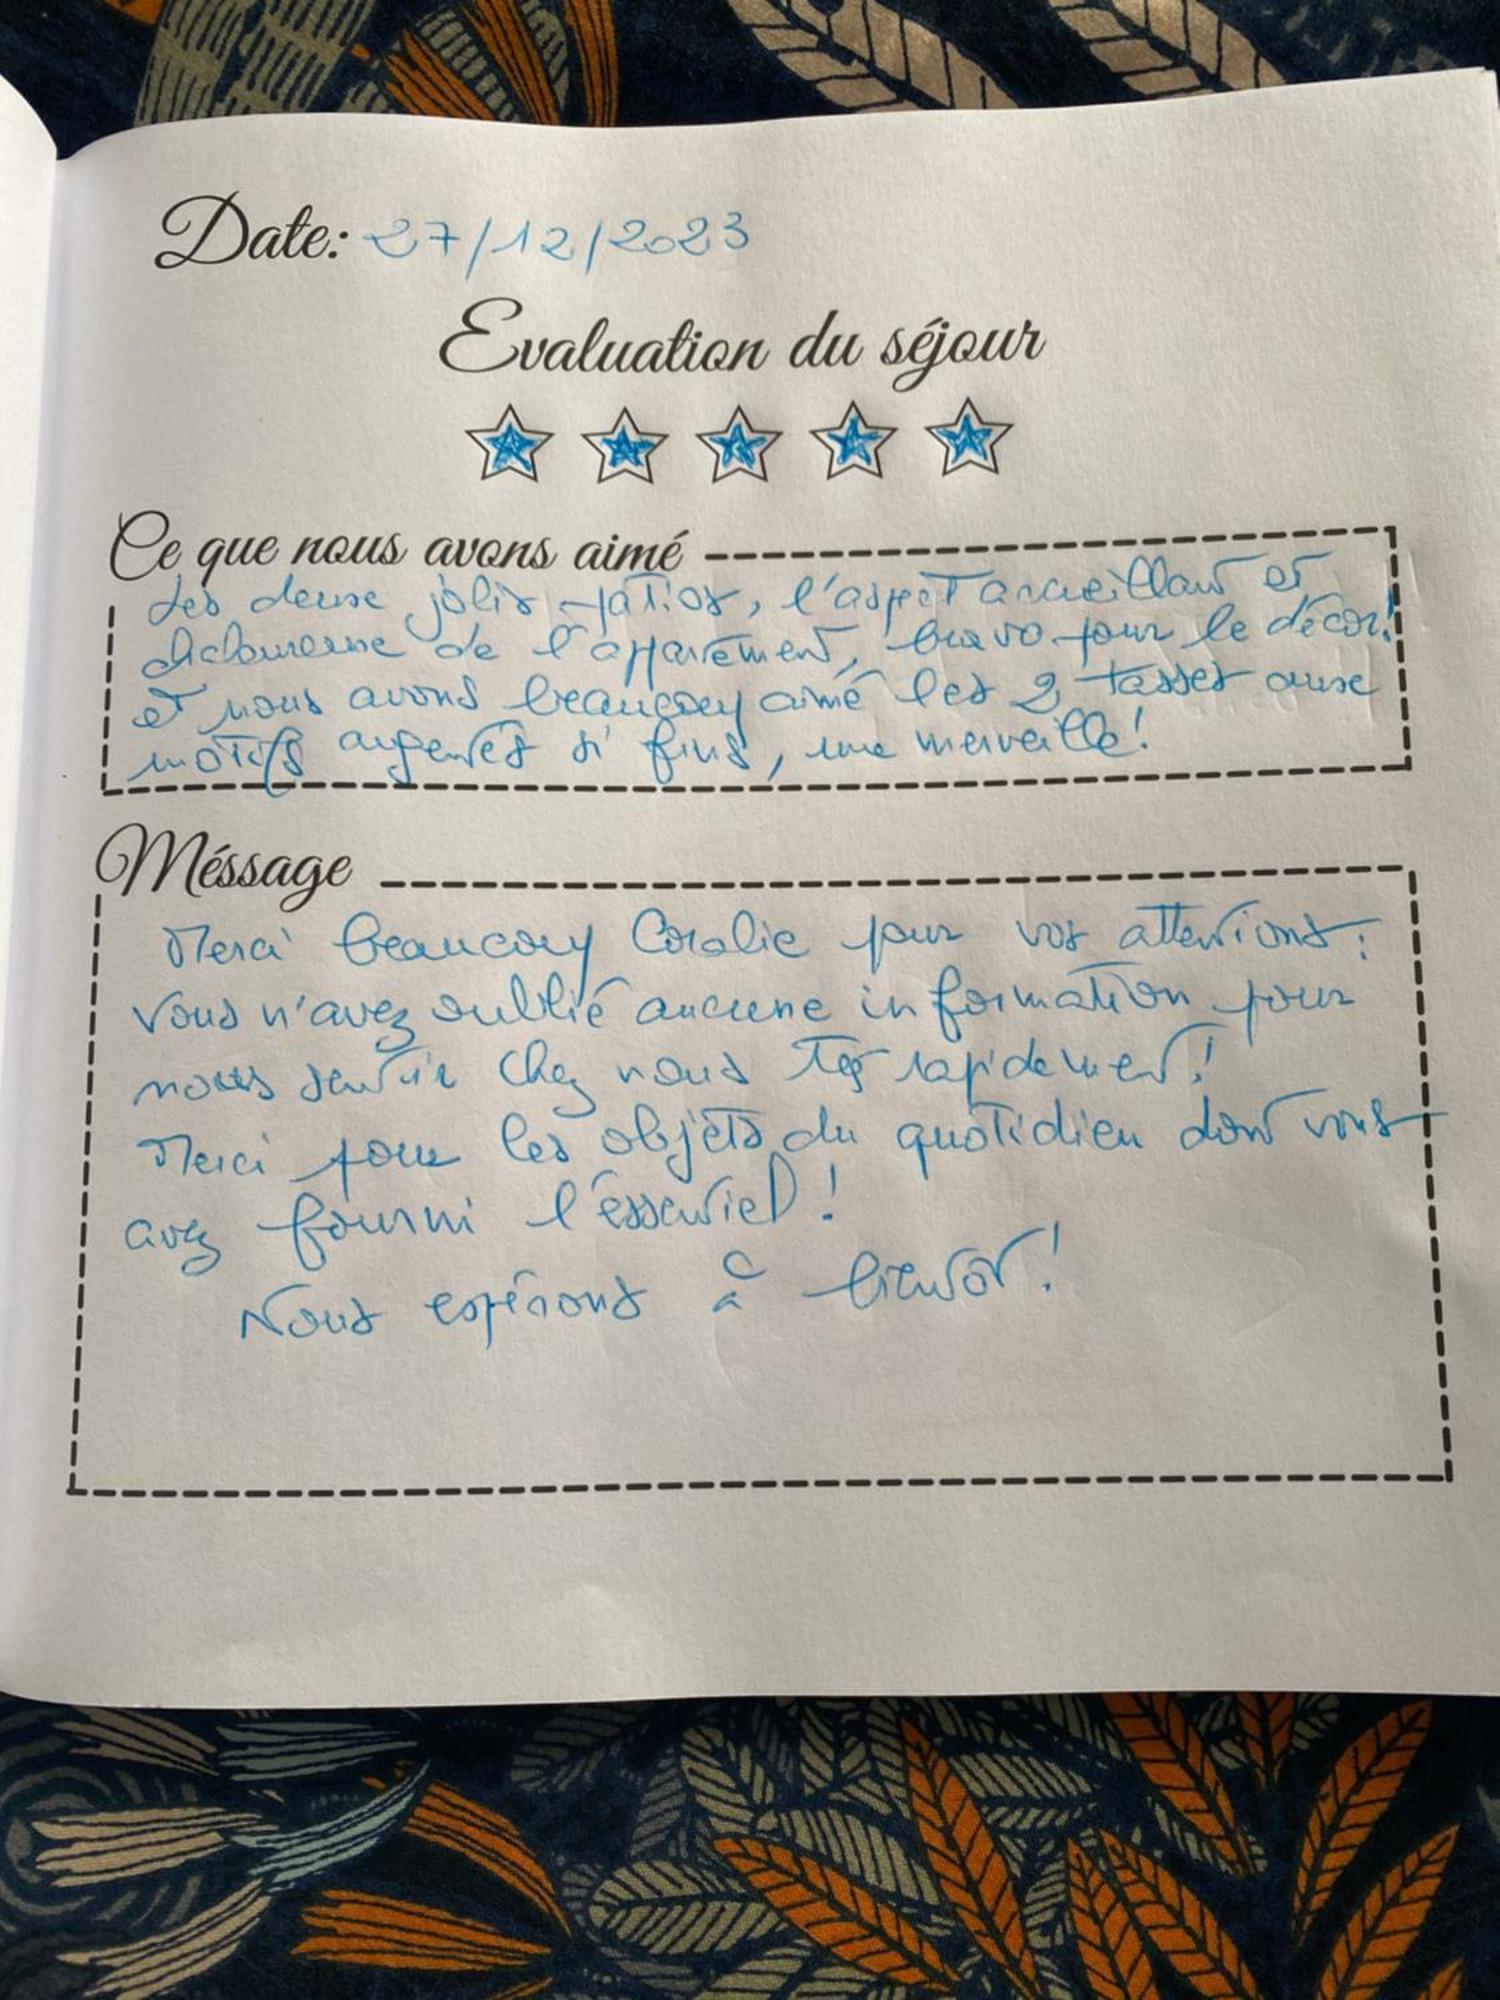 Date: 27/12/2023
Evaluation du séjour
Ce que nous avons aimé
Les deux jolis patios, l'aspect accueillant et
chaleureuse de l'appartement, bravo pour le décor!
et nous avons beaucoup aimé les 2 tasses aux
motifs argentés si fins, une merveille!
Méssage
Merci beaucoup Coralie pour vos attentions:
vous n'avez oublié aucune information pour
nous sentir chez nous très rapidement!
Merci pour les objets du quotidien dont vous
avez fourni l'essentiel!
Nous espérons à bientôt!